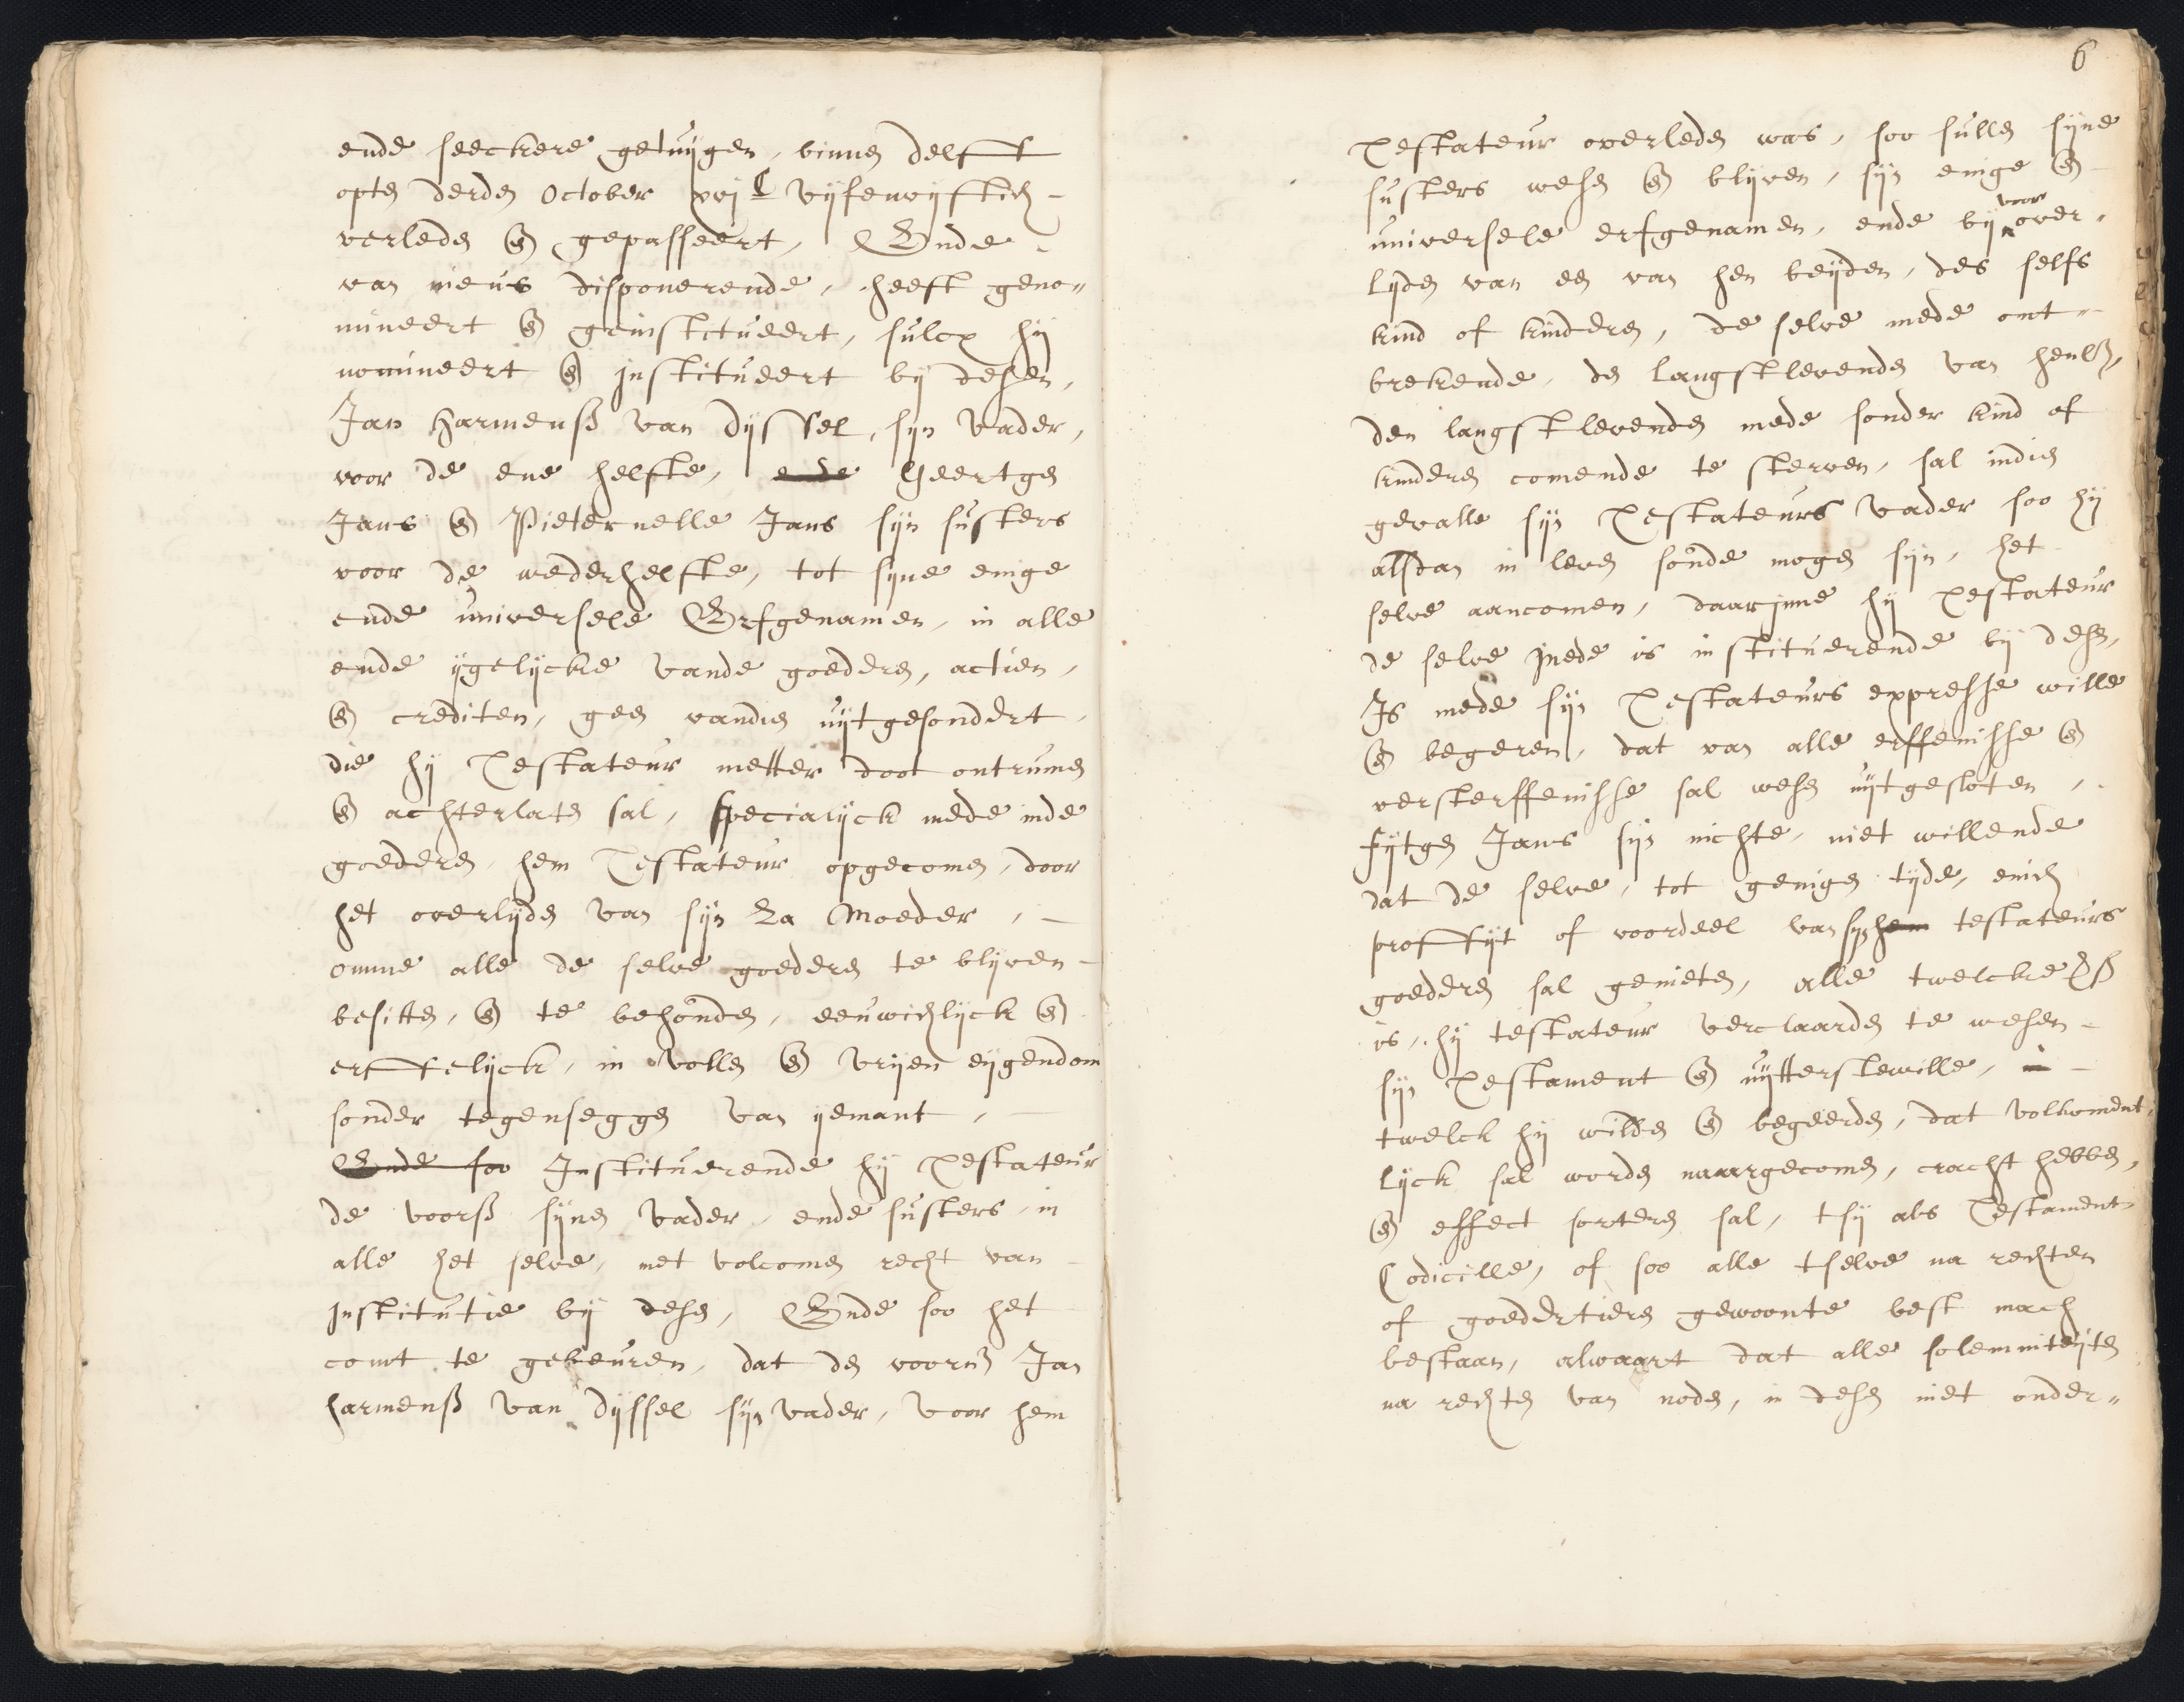 ende seeckere getuijgen, binnen delfft
opten derden October xvj C vijfenvijftich
verleden en gepasseert, Ende
van nieus disponerende, heeft geno-
mineert en geinstitueert, sulcx hij
nomineert en institueert bij desen,
Jan Harmensz van Dijssel, sijn vader,
voor de ene helfte, ende Geertgen
Jans en Pieternelle Jans sijn susters
voor de wederhelfte, tot sijne enige
ende universele Erfgenamen, in alle
ende ijgelijcke vande goederen, actien,
en crediten, geen vandien uijtgesondert
die hij Testateur metter doot ontruimen
en achterlaten sal, specialijck mede inde
goederen, hem Testateur opgecomen, door
het overlijden van sijn Za Moeder,
omme alle de selve goederen te blijven
besitten, en te behouden, eeuwichlijck en
erffelijck, in vollen en vrijen eijgendom
sonder tegenseggen van ijemant,
Ende soo Instituerende hij Testateur
de voorsz sijnen vader, ende susters, in
alle het selve, met volcomen recht van
Institutie bij desen, Ende soo het
comt te gebeuren, dat den voorn Jan
harmensz van Dijssel sijn vader, voor hem
6
Testateur overleden was, soo sullen sijne
susters wesen en blijven, sijn enige en
universele erfgenamen, ende bij voor over-
lijden van een van hen beijden, des selfs
kind of kinderen, de selve mede ont-
brekende, de langstlevende van henl,
den langstlevenden mede sonder kind of
kinderen comende te sterven, sal indien
gevalle sijn Testateurs vader soo hij
alsdan in leven soude mogen sijn, het
selve aancomen, daarinne hij Testateur
de selve mede is instituerende bij desen,
Is mede sijn Testateurs expresse wille
en begeren, dat van alle erffenisse en
versterffenisse sal wesen uijtgesloten,
Fijtgen Jans sijn nichte, niet willende
dat de selve, tot genigen tijde, enich
proffijt of voordeel van sijn hem testateurs
goederen sal genieten, alle twelcke vsz
is, hij testateur verclaarden te wesen
sijn Testament en uijtterstewille, in
twelck hij wilde en begeerden, dat volkoment-
lijck sal worden naargecomen, cracht hebben,
en effect sorteren sal, tsij als Testament
Codicille, of soo alle tselve na rechten
of goedertieren gewoonte best mach
bestaan, alwaart dat alle solemniteijten
na rechten van noden, in desen niet onder-